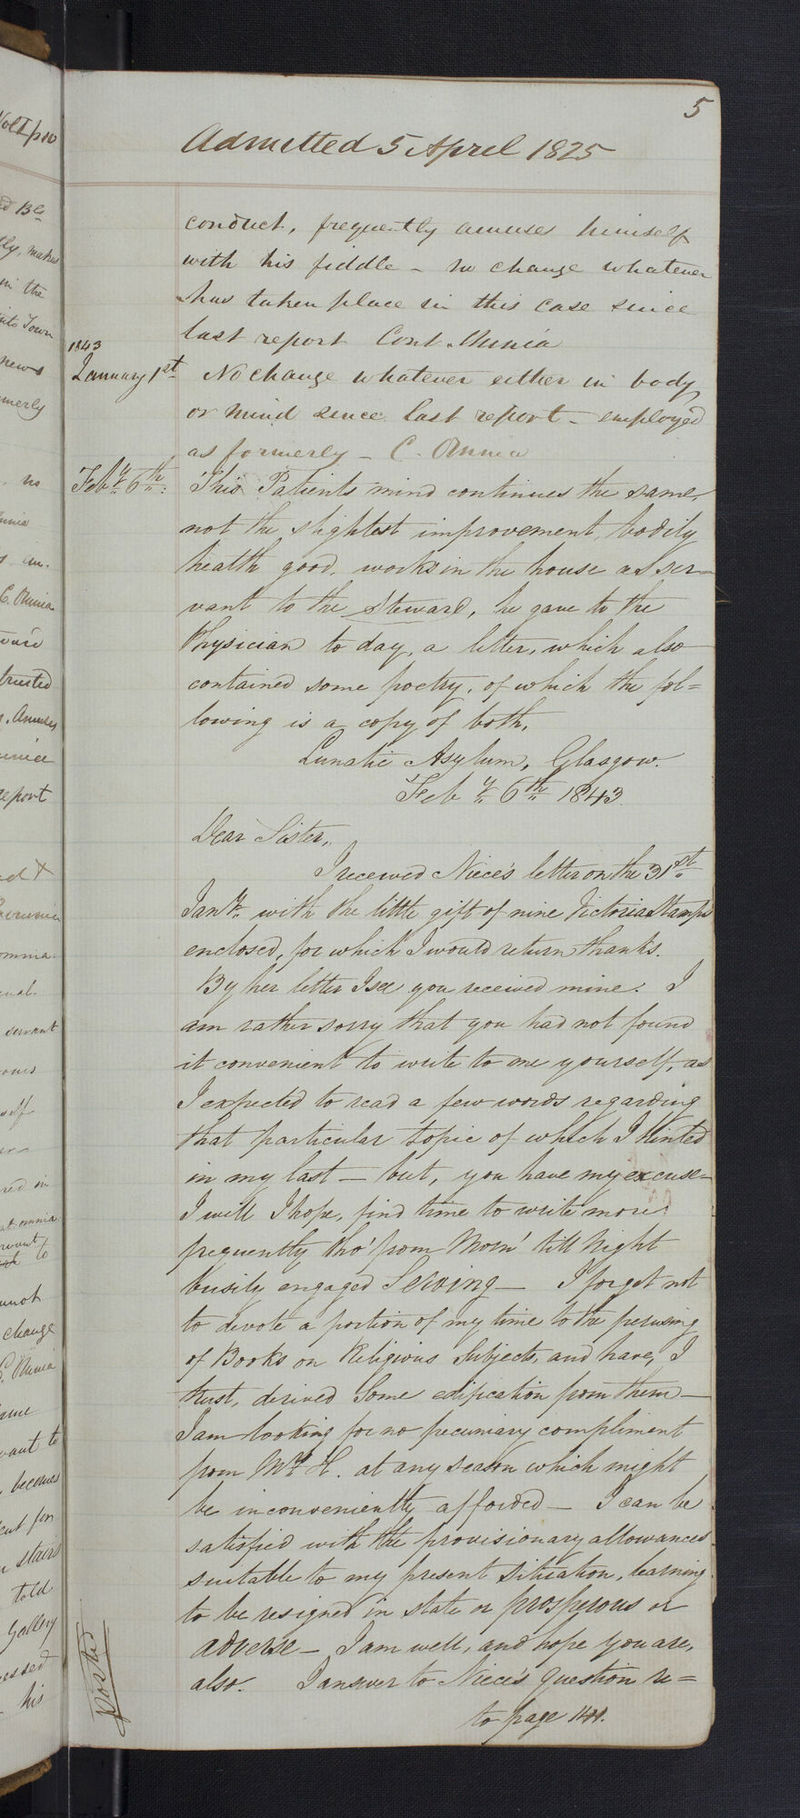 5
Admitted 5 April 1825
conduct, frequently amuses himself
with his fiddle - no change whatever
has taken place in this case since
last report Cont. Omnia
1843
January 1st No change whatever either in body
or mind since last report - employed
as formerly - C. Omnia
Feby. 6th: This Patients mind continues the same,
not the slightest improvement, bodily
health good, works in the house as ser-
vant to the Steward, he gave to the
Physician to day, a letter, which also
contained some poetry, of which the fol=
lowing is a copy of both.
Lunatic Asylum, Glasgow.
Feby. 6th 1843.
Dear Sister,
I received Niece's letter on the 31st
Jany. with the little gift of nine Victoria Stamps
enclosed, for which I would return thanks.
By her letter I see you received mine. I
am rather sorry that you had not found
it convenient to write to me yourself, as
I expected to read a few words regarding
that particular topic of which I hinted
in my last - but, you have my excuse -
I will I hope, find time to write more
frequently tho' from Morn' till Night
busily engaged Serving - I forget not
to devote a portion of my time to the perusing
of Books on Religious Subjects, and have, I
trust, derived Some edification from them -
I am looking for no pecuniary compliment
from Mr. H. at any season which might
be inconveniently afforded - I can be
satisfied with the provisionary allowances
suitable to my present situation, learning
to be resigned in state or prosperous or
adverse - I am well, and hope you are,
also. I answer to Niece's question re=
to page 141.
Posted
Vol I p 10
makes
in the
Town
news
formerly
no
C. Omnia
trusted
Amuses
report
servant
change
C. Omnia
becomes
stairs
told
Gallery
his